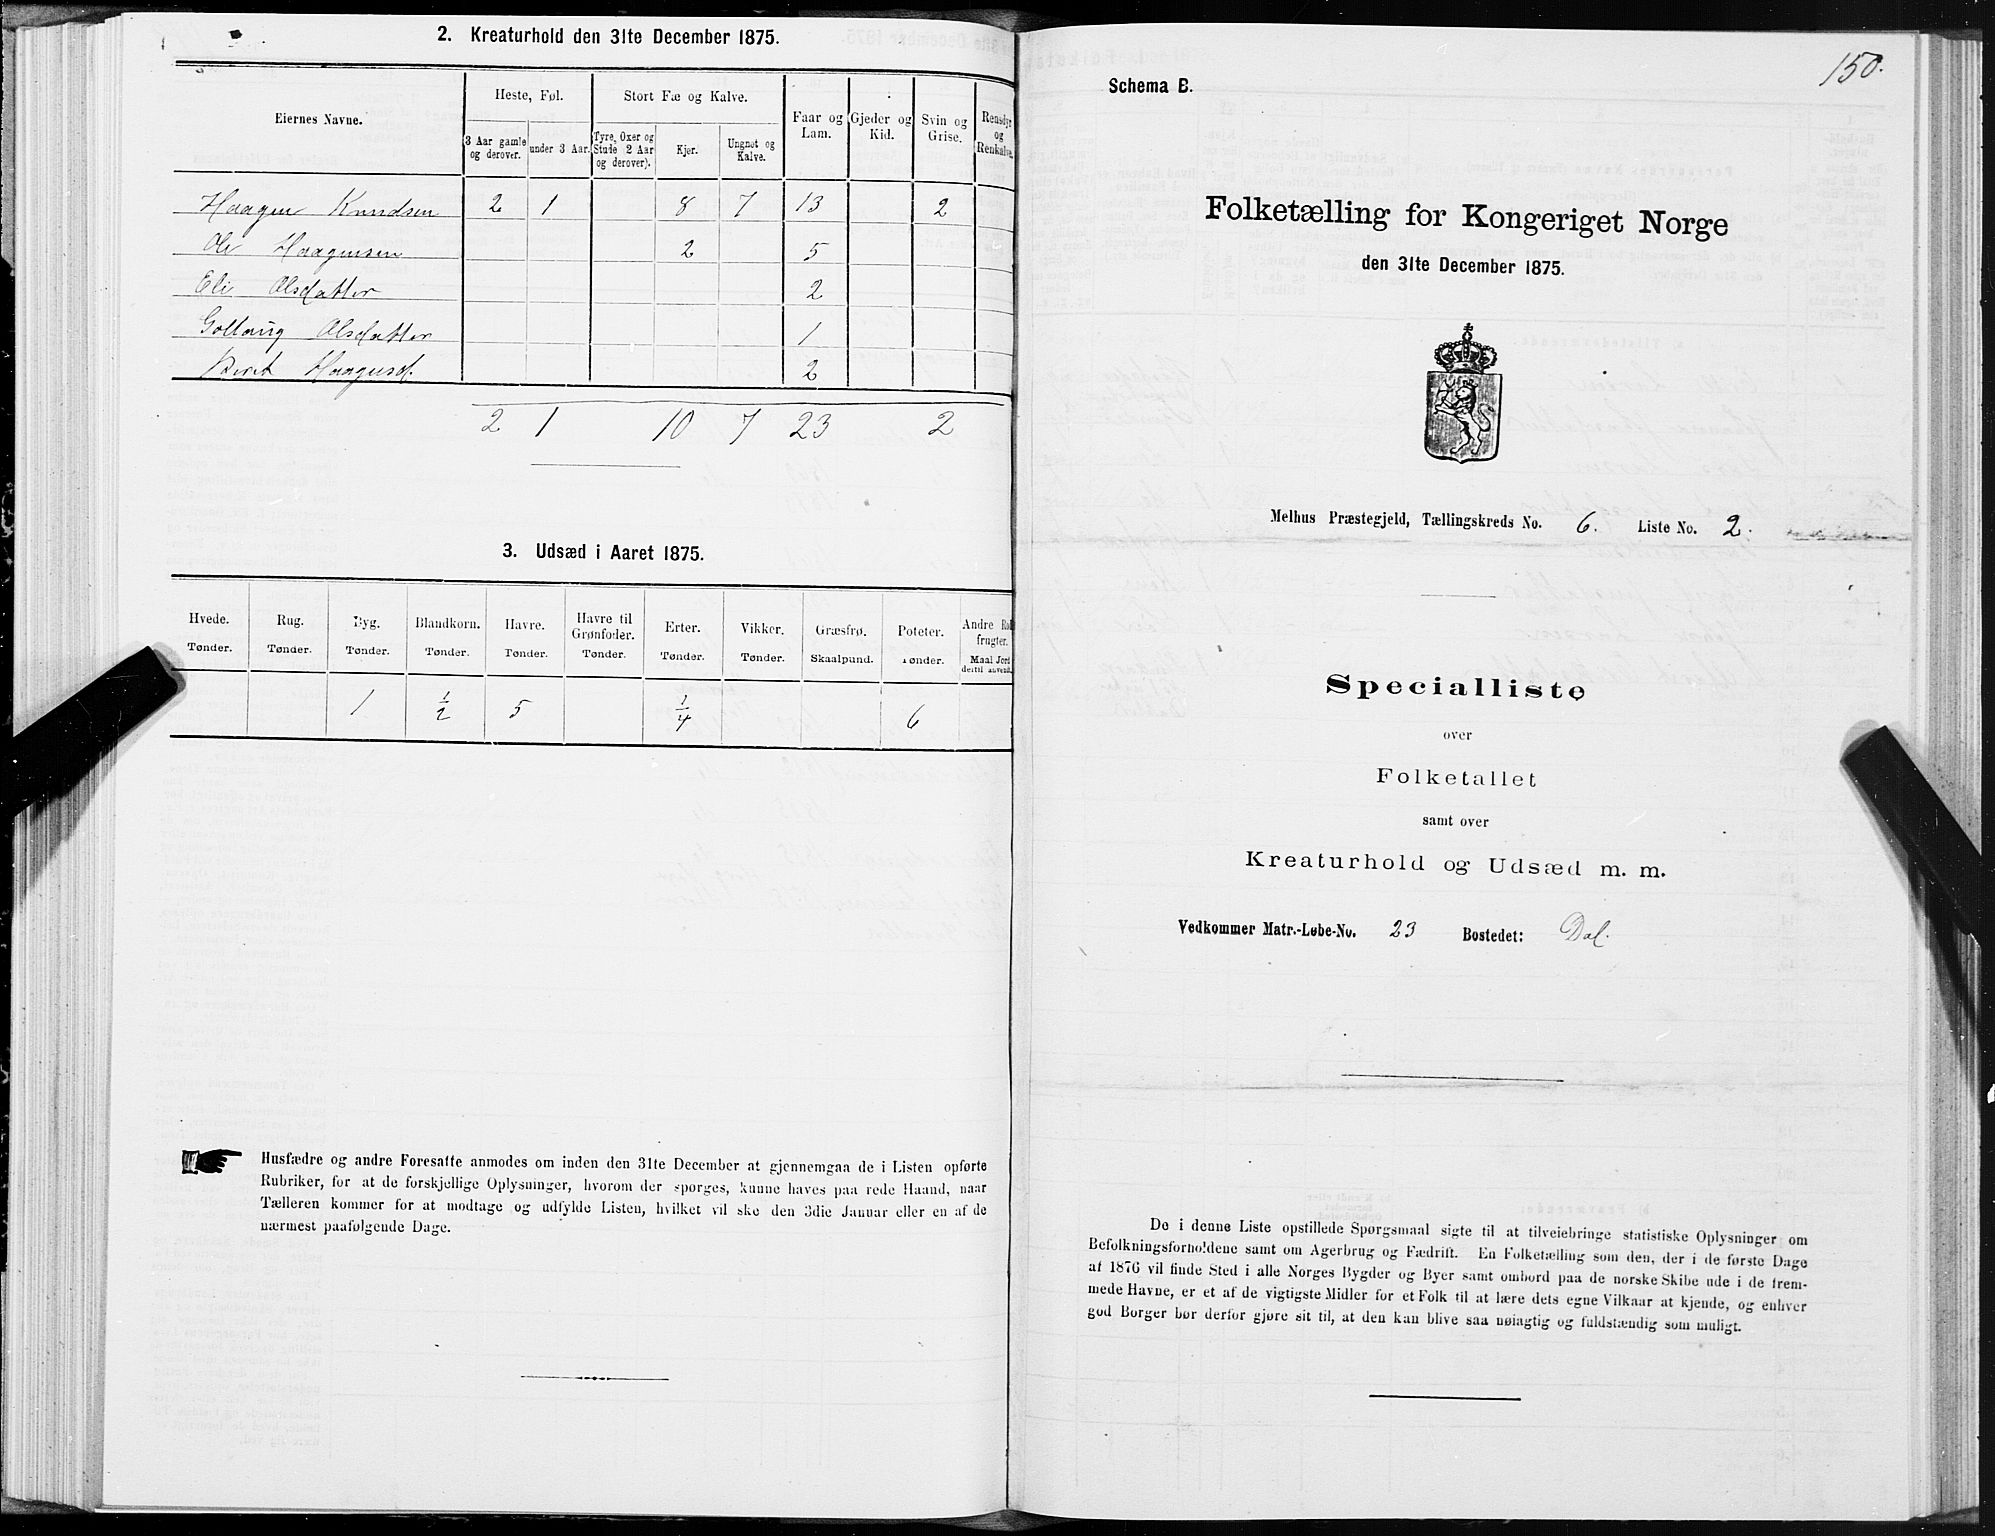 2. Kreaturhold den 31te December 1875.
Eiernes Navne.
Heste, Føl.
Stort Fæ og Kalve.
Faar og Lam.
Gjeder og Kid.
Svin og Grise.
Rensdyr og Renkalve.
3 Aar gamle og derover.
under 3 Aar.
Tyre, Oxer og Stude 2 Aar og derover).
Kjer.
Ungnøt og Kalve.
Haagen Knudsen 2 1 8 7 13 2
Ole Haagensen 2 5
Eli Olsdatter 2
Golloug Olsdatter 1
Beret Haagensd. 2
2 1 10 7 23 2
3. Udsæd i Aaret 1875.
Hvede. Rug. Byg. Blandkorn. Havre. Havre til Grønfoder. Erter. Vikker. Græsfrø. Poteter. Andre Rodfrugter.
Tønder. Tønder. Tønder. Tønder. Tønder. Tønder. Tønder. Tønder. Skaalpund. Tønder. Maal Jord dertil anvendt.
1 1/2 5 1/4 6
Husfædre og andre Foresatte anmodes om inden den 31te December at gjennemgaa de i Listen opførte
Rubriker, for at de forskjellige Oplysninger, hvorom der spørges, kunne haves paa rede Haand, naar
Tælleren kommer for at modtage og udfylde Listen, hvilket vil ske den 3die Januar eller en af de
nærmest paafølgende Dage.
150.
Schema B.
Folketælling for Kongeriget Norge
den 31te December 1875.
Melhus Præstegjeld, Tællingskreds No. 6. Liste No. 2.
Specialliste
over
Folketallet
samt over
Kreaturhold og Udsæd m. m.
Vedkommer Matr.-Løbe-No. 23 Bostedet: Dal.
De i denne Liste opstillede Spørgsmaal sigte til at tilveiebringe statistiske Oplysninger om
Befolkningsforholdene samt om Agerbrug og Fædrift. En Folketælling som den, der i de første Dage
af 1876 vil finde Sted i alle Norges Bygder og Byer samt ombord paa de norske Skibe ude i de frem-
mede Havne, er et af de vigtigste Midler for et Folk til at lære dets egne Vilkaar at kjende, og enhver
god Borger bør derfor gjøre sit til, at den kan blive saa nøiagtig og fuldstændig som muligt.